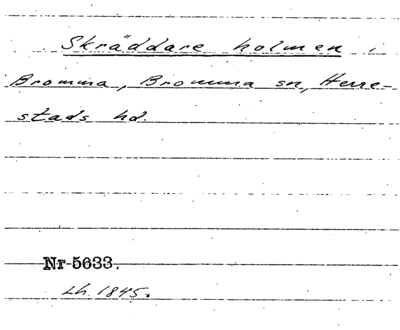 Skräddare holmen,
Bromma, Bromma sn, Herre-
stads hd.
Nr 5633.
Lh. 1845.